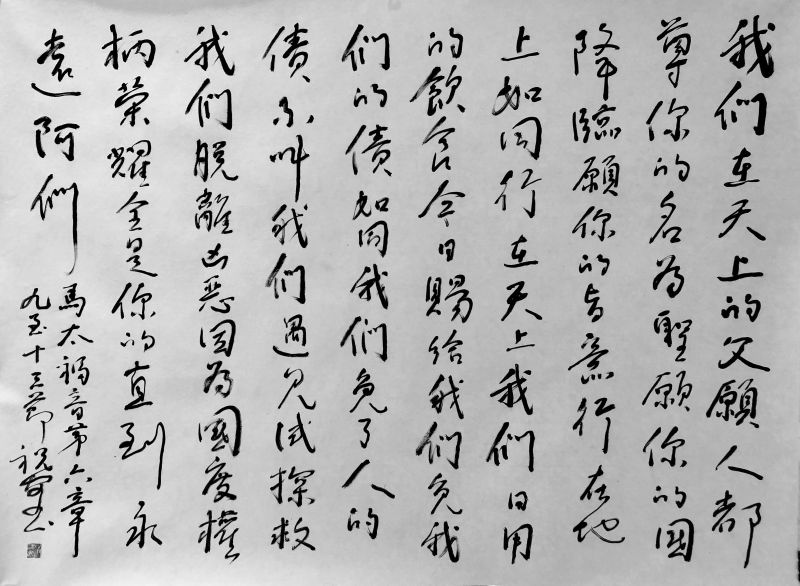 我們在天上的父願人都
尊你的名為聖願你的國
降臨願你的旨意行在地
上如同行在天上我們日用
的飲食今日賜給我們免我
們的債如同我們免了人的
債不叫我們遇見試探救
我們脫離凶惡因為國度權
柄榮耀全是你的直到永
遠阿們
馬太福音第六章
九至十三節